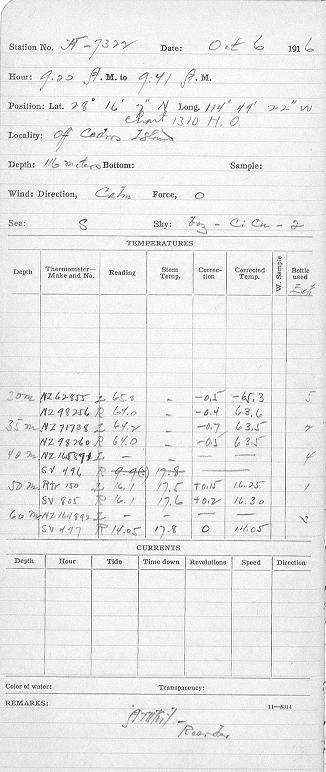 Station No. H-7322 Date: Oct 6 1916
Hour: 9.20 A.M. to 9:41 A.M.
Position: Lat. 28° 16' 7" N Long. 114° 49' 22" W
Chart 1310 H.O
Locality: Off Cedros Island
Depth: 116 meters Bottom: Sample:
Wind: Direction, Calm Force, 0
Sea: S Sky: - Ci Cu - 2
TEMPERATURES
Depth Thermometer—Make and No. Reading Stem Temp. Correction Corrected Temp. W. Sample Bottle used
30m NZ 62855 L 65.8 - -0.5 65.3 5
NZ 98256 R 64.0 - -0.4 63.6
35m NZ 71738 L 64.2 - -0.7 63.5 2
NZ 98260 R 64.0 - -0.5 63.5
40m L - - 4
SV 496 R 17.8
50m 150 L 16.1 17.5 +0.15 16.25 1
SV 805 R 16.1 17.6 +0.2 16.30
60m NZ 164892 L - - -
SV 497 R 14.05 17.8 0 14.05
CURRENTS
Depth Hour Tide Time down Revolutions Speed Direction
Color of water: Transparency:
REMARKS: 11—5314
Recorder